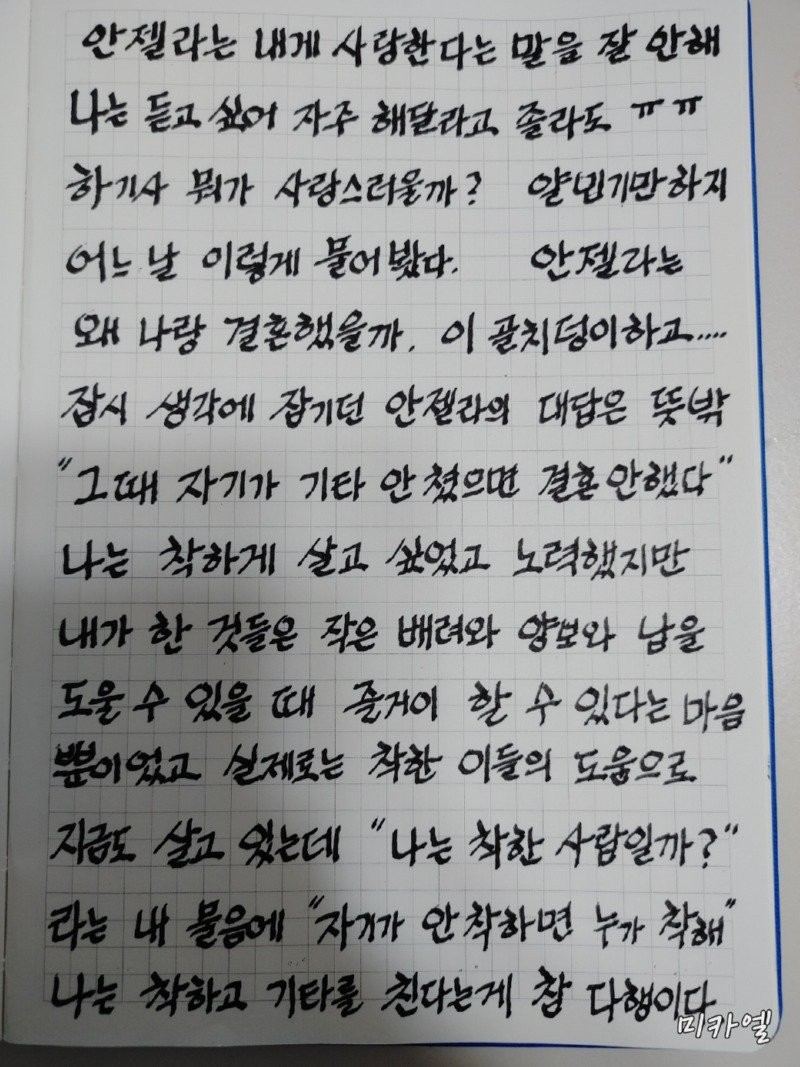 안젤라는 내게 사랑한다는 말을 잘 안해
나는 듣고 싶어 자주 해달라고 졸라도 ㅠㅠ
하기사 뭐가 사랑스러울까? 얄밉기만하지
어느 날 이렇게 물어봤다. 안젤라는
왜 나랑 결혼했을까. 이 골치덩이하고....
잠시 생각에 잠기던 안젤라의 대답은 뜻밖
"그때 자기가 기타 안 쳤으면 결혼 안했다"
나는 착하게 살고 싶었고 노력했지만
내가 한 것들은 작은 배려와 양보와 남을
도울 수 있을 때 즐거이 할 수 있다는 마음
뿐이었고 실제로는 착한 이들의 도움으로
지금도 살고 있는데 "나는 착한 사람일까?"
라는 내 물음에 "자기가 안 착하면 누가 착해"
나는 착하고 기타를 친다는게 참 다행이다
미카엘